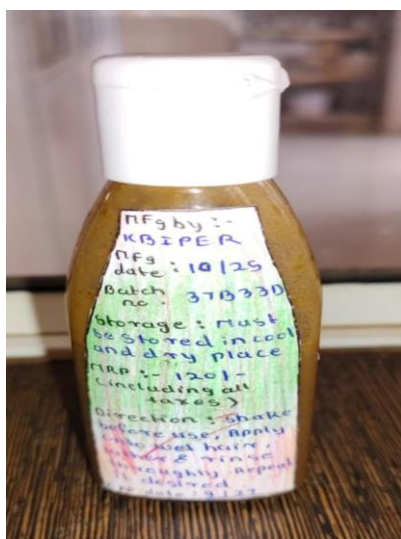 Mfg by :-
KBIPER
Mfg
date : 10/25
Batch
no. 37B33D
Storage : Must
be stored in cool
and dry place
MRP :- 120/-
(including all
taxes)
Direction : Shake
before use, Apply
wet hair
& rinse
Repeat
desired
date : 9/27